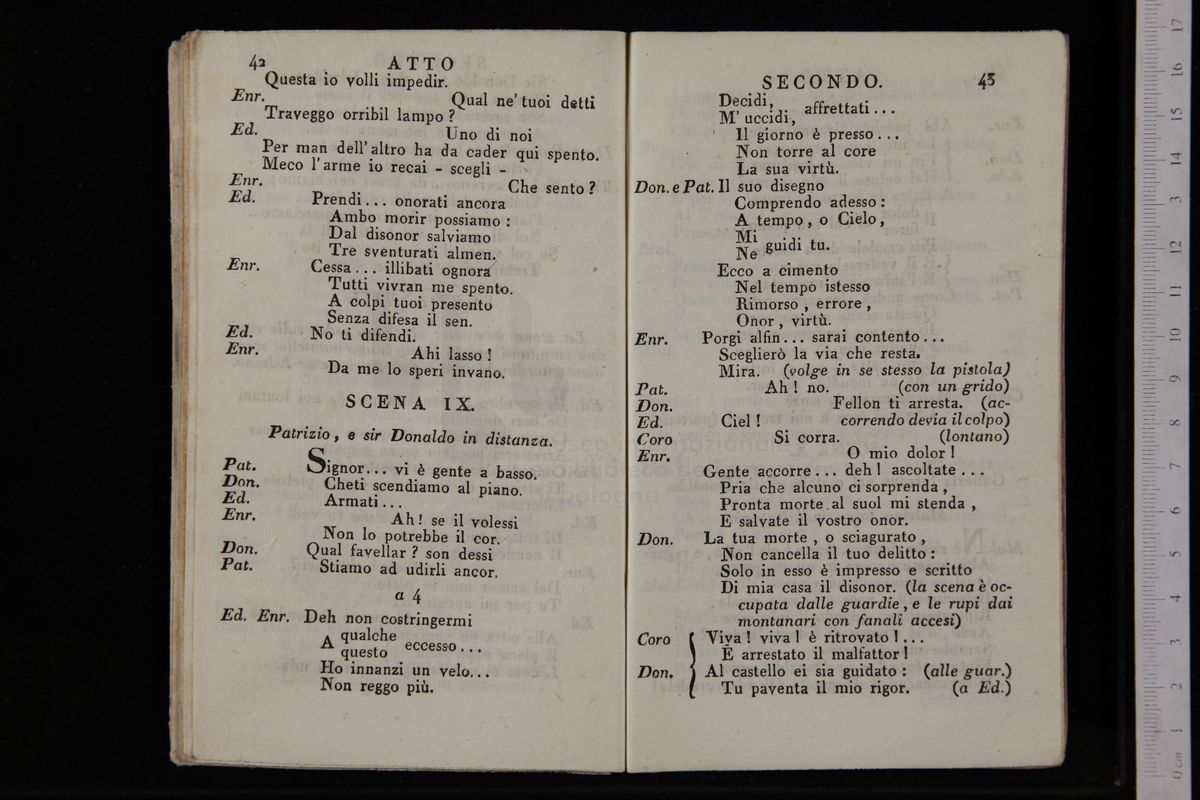 42 ATTO
Questa io volli impedir.
Enr. Qual ne' tuoi detti
Traveggo orribil lampo ?
Ed. Uno di noi
Per man dell' altro ha da cader qui spento.
Meco l' arme io recai - scegli -
Enr. Che sento ?
Ed. Prendi... onorati ancora
Ambo morir possiamo :
Dal disonor salviamo
Tre sventurati almen.
Enr. Cessa... illibati ognora
Tutti vivran me spento.
A colpi tuoi presento
Senza difesa il sen.
Ed. No ti difendi.
Enr. Ahi lasso !
Da me lo speri invano.
SCENA IX.
Patrizio, e sir Donaldo in distanza.
Pat. Signor... vi è gente a basso.
Don. Cheti scendiamo al piano.
Ed. Armati...
Enr. Ah! se il volessi
Non lo potrebbe il cor.
Don. Qual favellar ? son dessi
Pat. Stiamo ad udirli ancor.
a 4
Ed. Enr. Deh non costringermi
A qualche
questo eccesso...
Ho innanzi un velo...
Non reggo più.
SECONDO. 43
Decidi,
M' uccidi, affrettati...
Il giorno è presso...
Non torre al core
La sua virtù.
Don. e Pat. Il suo disegno
Comprendo adesso :
A tempo, o Cielo,
Mi
Ne guidi tu.
Ecco a cimento
Nel tempo istesso
Rimorso, errore,
Onor, virtù.
Enr. Porgi alfin... sarai contento...
Sceglierò la via che resta.
Mira. (volge in se stesso la pistola)
Pat. Ah ! no. (con un grido)
Don. Fellon ti arresta. (ac-
Ed. Ciel ! correndo devia il colpo)
Coro Si corra. (lontano)
Enr. O mio dolor !
Gente accorre... deh ! ascoltate...
Pria che alcuno ci sorprenda,
Pronta morte al suol mi stenda,
E salvate il vostro onor.
Don. La tua morte, o sciagurato,
Non cancella il tuo delitto :
Solo in esso è impresso e scritto
Di mia casa il disonor. (la scena è oc-
cupata dalle guardie, e le rupi dai
montanari con fanali accesi)
Coro Viva ! viva ! è ritrovato !...
È arrestato il malfattor !
Don. Al castello ei sia guidato : (alle guar.)
Tu paventa il mio rigor. (a Ed.)
0 cm 1 2 3 4 5 6 7 8 9 10 11 12 13 14 15 16 17